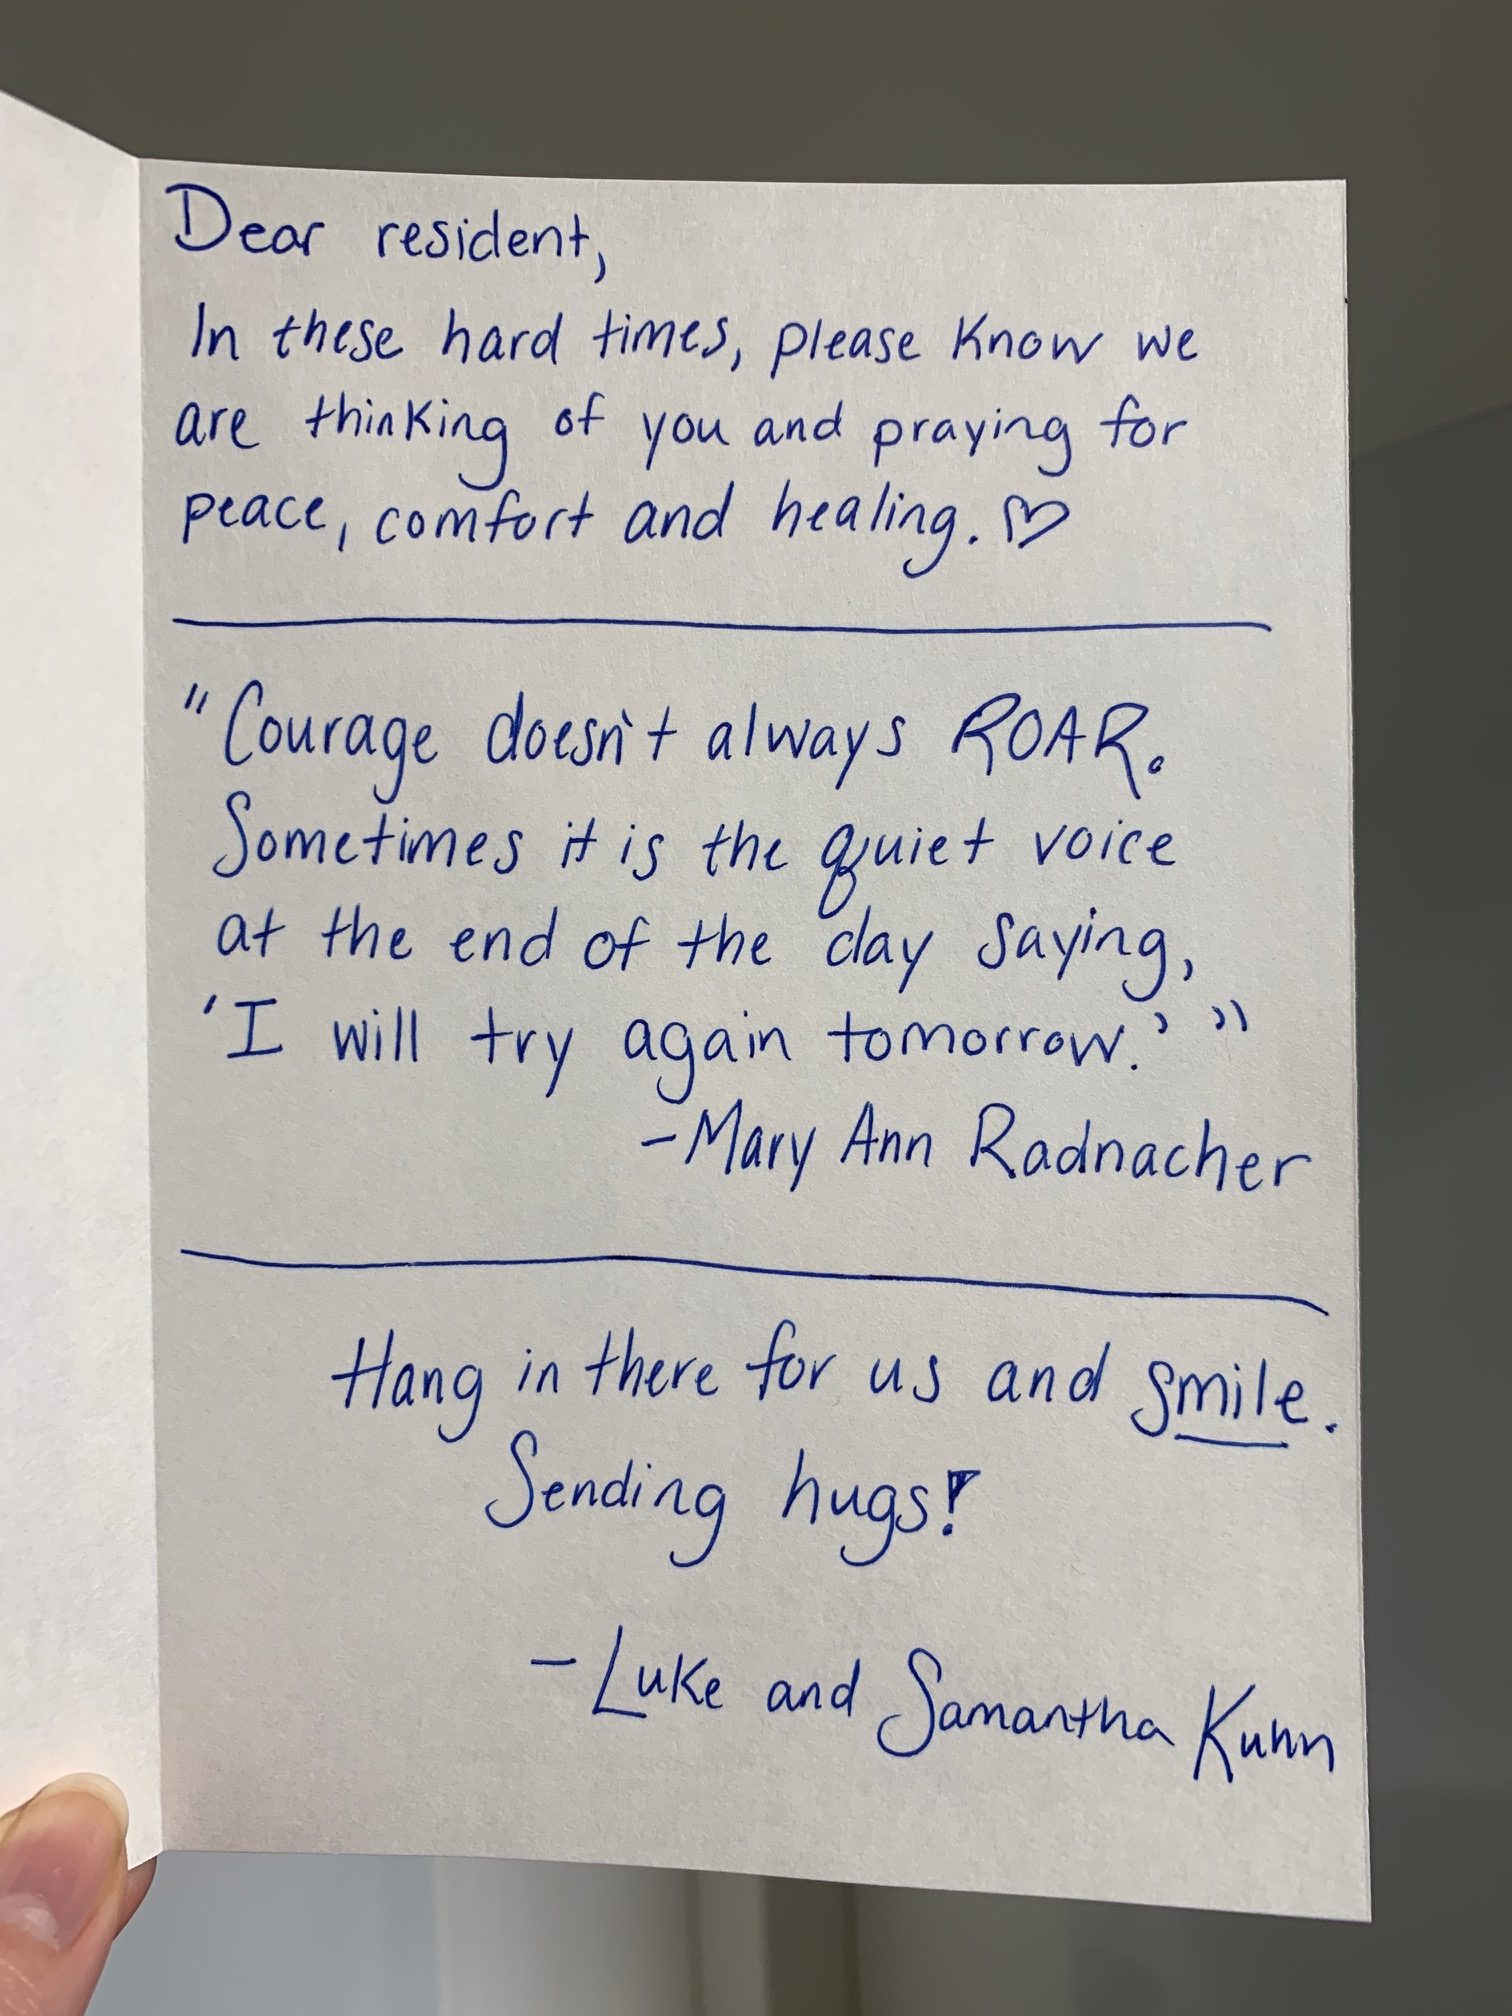 Dear resident,
In these hard times, please know we
are thinking of you and praying for
peace, comfort and healing. ♡
"Courage doesn't always ROAR.
Sometimes it is the quiet voice
at the end of the day saying,
'I will try again tomorrow.' "
-Mary Ann Radnacher
Hang in there for us and smile.
Sending hugs!
- Luke and Samantha Kunn